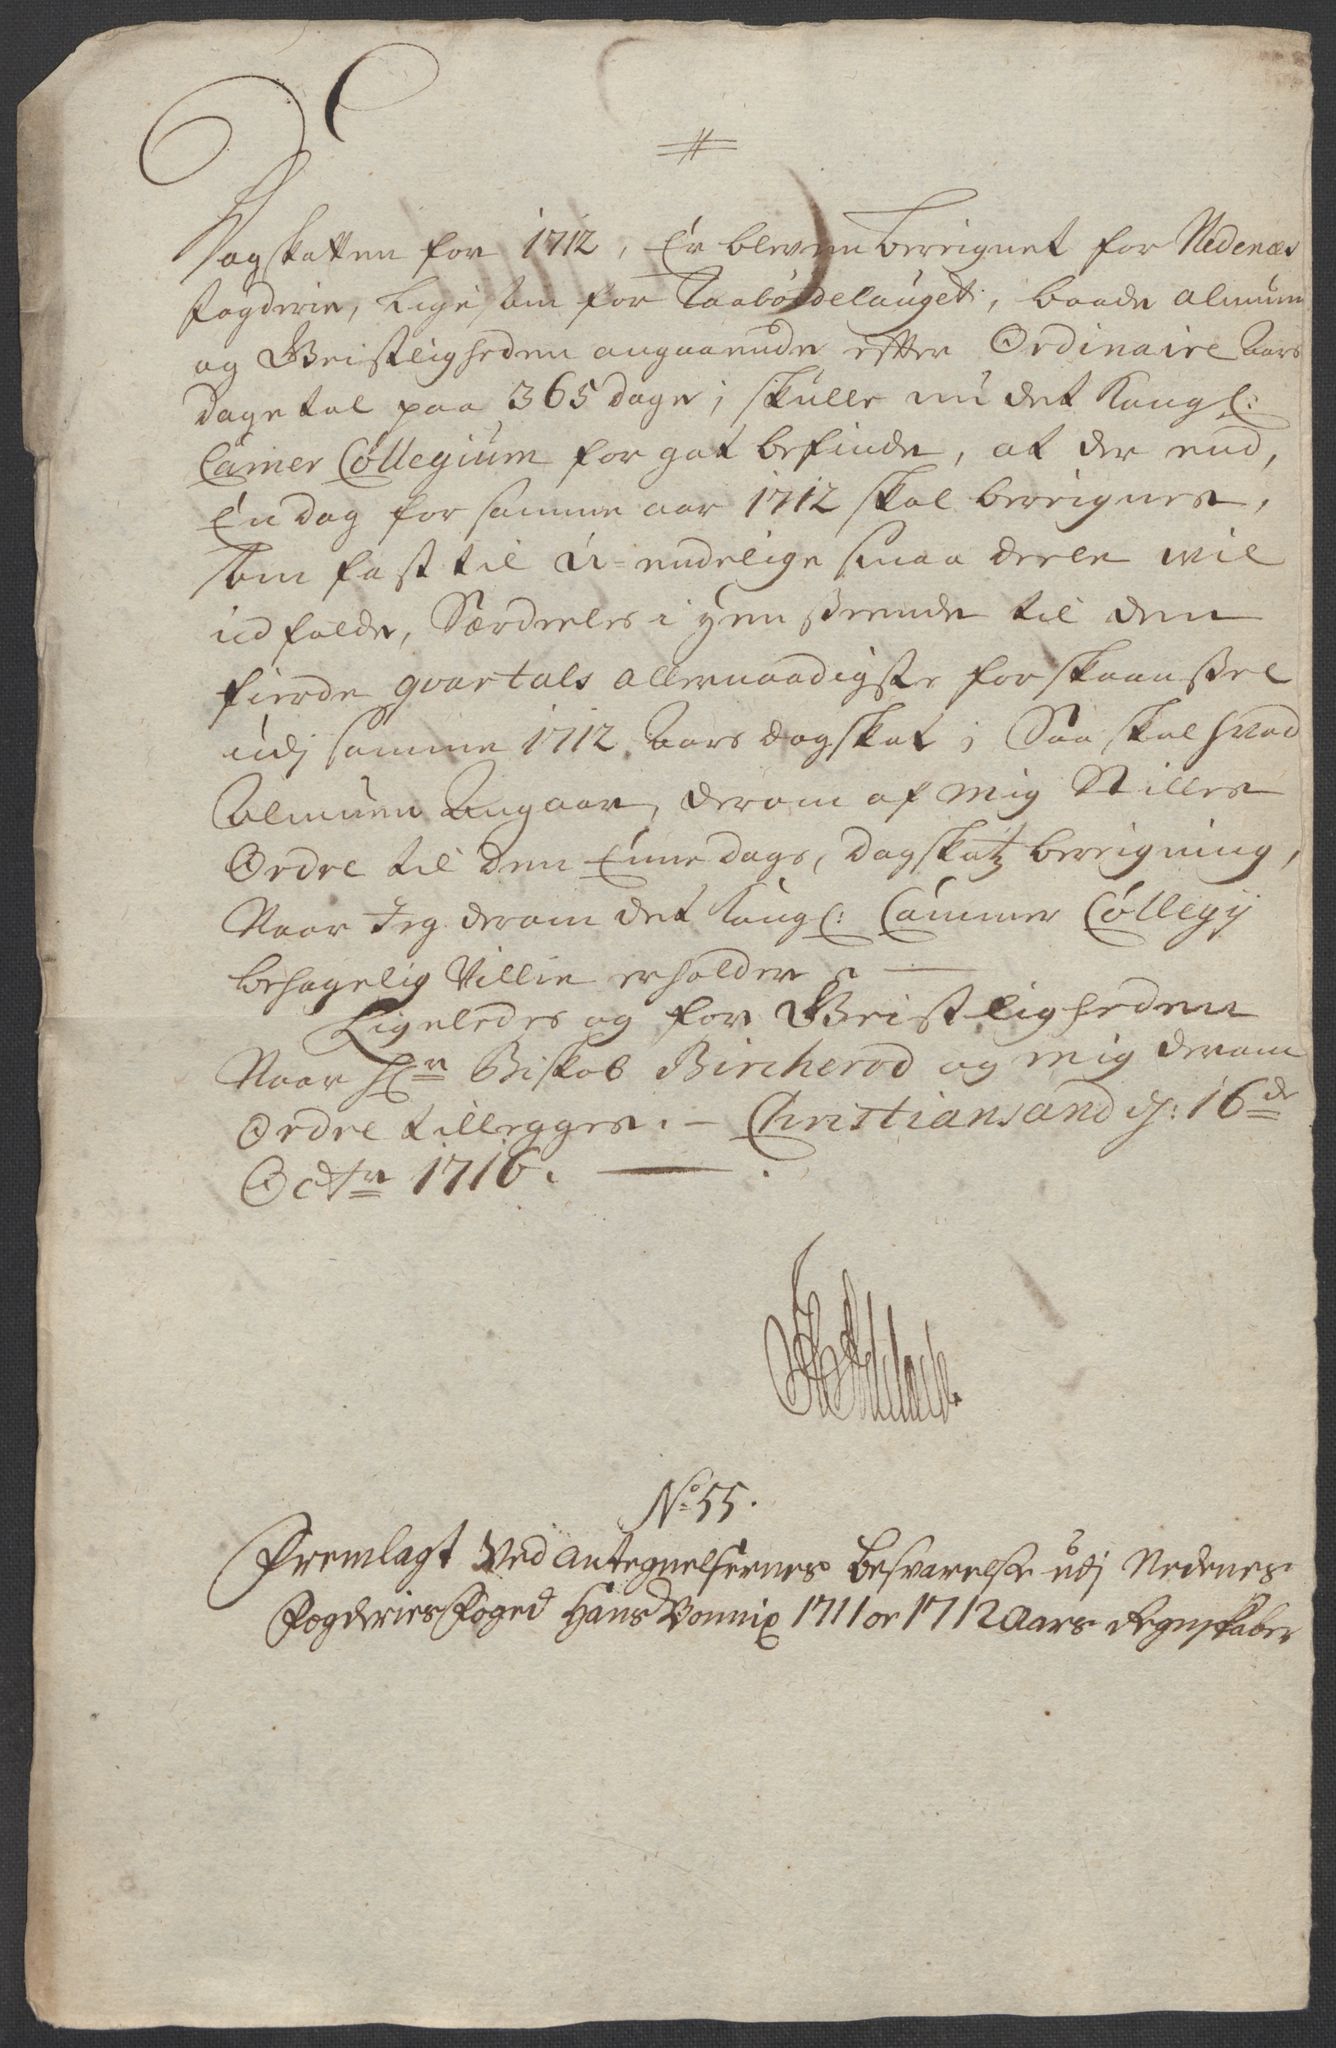 Dagskatten for 1712, Er bleven bereignet for Nedenæs
fogderie, ligesom for Raabøydelauget, baade almuen
og Geistligheden angaaende efter Ordinaire Aars
dagetal paa 365 dage; skulle nu det Kongl:
Camer Collegium forgot befinde, at der end,
En dag for samme aar 1712 skal bereignes,
som fast til U-endelige smaa deele wil
udfalde, Særdeeles i henseende til den
fierde qvartals allernaadigste forskaansel
udj samme 1712 Aars dagskat; Saa skal hvad
Almuen Angaar, derom af mig Stilles
Ordre til den Einne dags, dagskatz bereigning,
Naar Jeg derom det kongl: Cammer Collegij
behagelig Villie erholder. —
Ligeledes og for Geistligheden
Naar Hr Biskob Bircherod og mig derom
Ordre tillegges. – Christiansand d: 16de
Octr 1716. —
No 55.
Fremlagt Ved Antegnelsernes besvarelse udj Nedenes
Fogderies Foged Hans Bonnix 1711 oc 1712 Aars Regnskaber